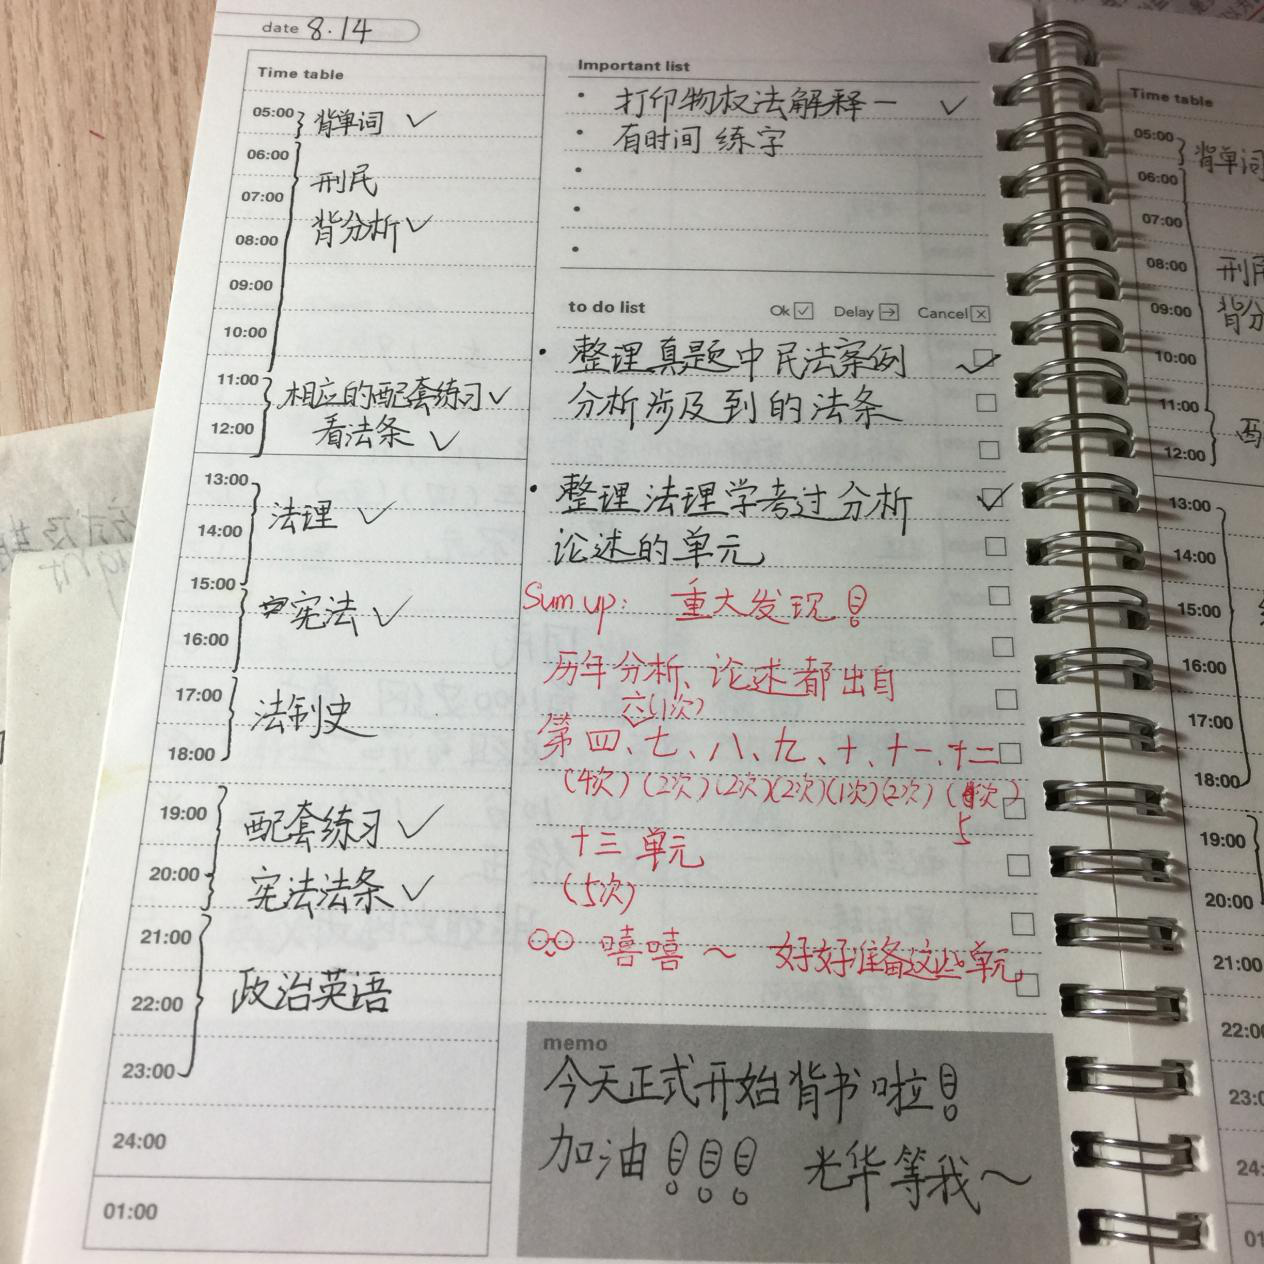 date 8.14
Time table
05:00 背单词 ✓
06:00
刑民
07:00
背分析 ✓
08:00
09:00
10:00
11:00
相应的配套练习 ✓
12:00 看法条 ✓
13:00
法理 ✓
14:00
15:00
宪法 ✓
16:00
17:00
法制史
18:00
19:00
配套练习 ✓
20:00
宪法法条 ✓
21:00
政治英语
22:00
23:00
24:00
01:00
Important list
· 打印物权法解释一 ✓
· 有时间 练字
to do list Ok ☑ Delay → Cancel ☒
· 整理真题中民法案例 ✓
分析涉及到的法条
· 整理法理学考过分析 ✓
论述的单元
Sum up: 重大发现!
历年分析、论述都出自
六(1次)
第四、七、八、九、十、十一、十二
(4次)(2次)(2次)(2次)(1次)(2次)(次)
5
十三 单元
(5次)
嘻嘻~ 好好准备这些单元
memo
今天正式开始背书啦!
加油!!! 光华等我~
Time table
05:00
背单词
06:00
07:00
08:00
09:00
10:00
11:00
12:00
13:00
14:00
15:00
16:00
17:00
18:00
19:00
20:00
21:00
22:00